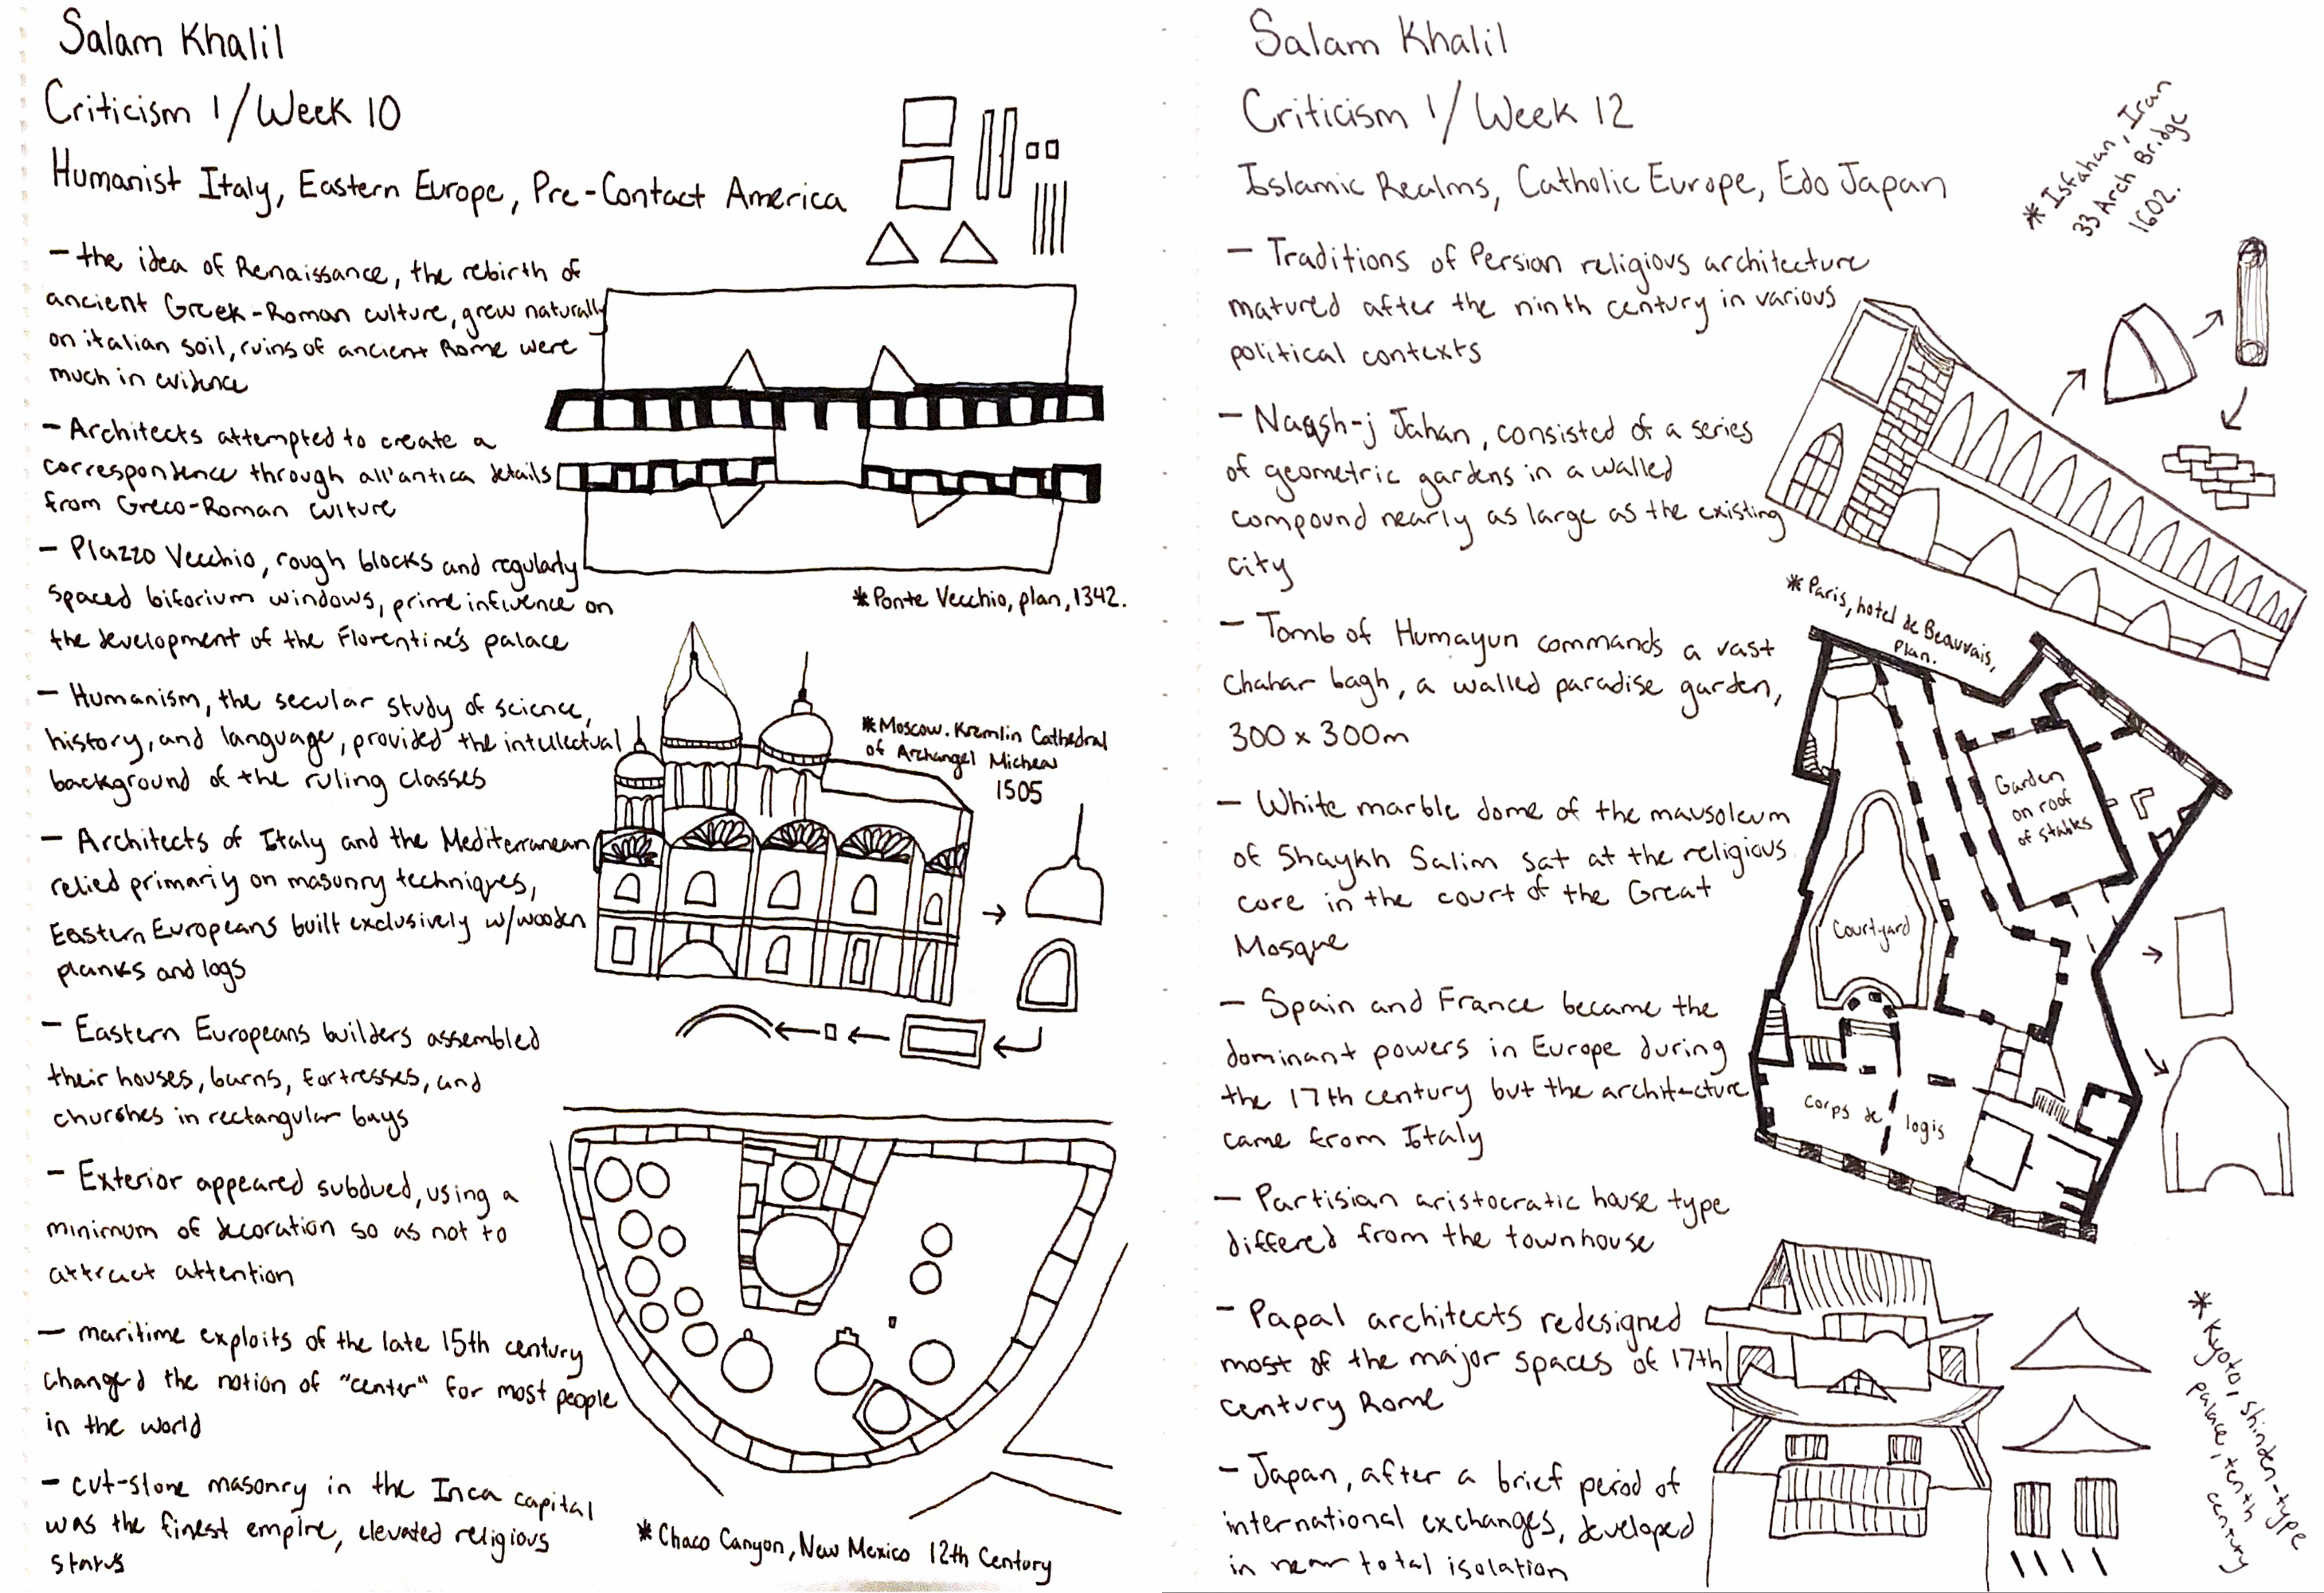 Salam Khalil
Criticism 1/Week 10
Humanist Italy, Eastern Europe, Pre-Contact America
- the idea of Renaissance, the rebirth of
ancient Greek-Roman culture, grew naturally
on italian soil, ruins of ancient Rome were
much in evidence
- Architects attempted to create a
correspondence through all'antica details
from Greco-Roman culture
- Plazzo Vecchio, rough blocks and regularly
spaced biforium windows, prime influence on
the development of the Florentine's palace
- Humanism, the secular study of science,
history, and language, provided the intullectual
background of the ruling classes
- Architects of Italy and the Mediterranean
relied primariy on masonry techniques,
Eastern Europeans built exclusively w/wooden
planks and logs
- Eastern Europeans builders assembled
their houses, barns, fortresses, and
churches in rectangular bays
- Exterior appeared subdued, using a
minimum of decoration so as not to
attract attention
- maritime exploits of the late 15th century
changed the notion of "center" for most people
in the world
- cut-stone masonry in the Inca capital
was the finest empire, elevated religious
status
*Ponte Vecchio, plan, 1342.
*Moscow. Kremlin Cathedral
of Archangel Micheal
1505
*Chaco Canyon, New Mexico 12th Century
Salam Khalil
Criticism 1/Week 12
Islamic Realms, Catholic Europe, Edo Japan
- Traditions of Persian religious architecture
matured after the ninth century in various
political contexts
- Naqsh-j Jahan, consisted of a series
of geometric gardens in a walled
compound nearly as large as the existing
city
- Tomb of Humayun commands a vast
chahar bagh, a walled paradise garden,
300 x 300m
- White marble dome of the mausoleum
of Shaykh Salim sat at the religious
core in the court of the Great
Mosque
- Spain and France became the
dominant powers in Europe during
the 17th century but the architecture
came from Italy
- Partisian aristocratic house type
differed from the townhouse
- Papal architects redesigned
most of the major spaces of 17th
century Rome
- Japan, after a brief period of
international exchanges, developed
in near total isolation
* Isfahan, Iran
33 Arch Bridge
1602.
* Paris, hotel de Beauvais,
Plan.
Garden
on roof
of stables
Courtyard
corps de logis
* Kyoto, Shinden-type
palace, tenth
century